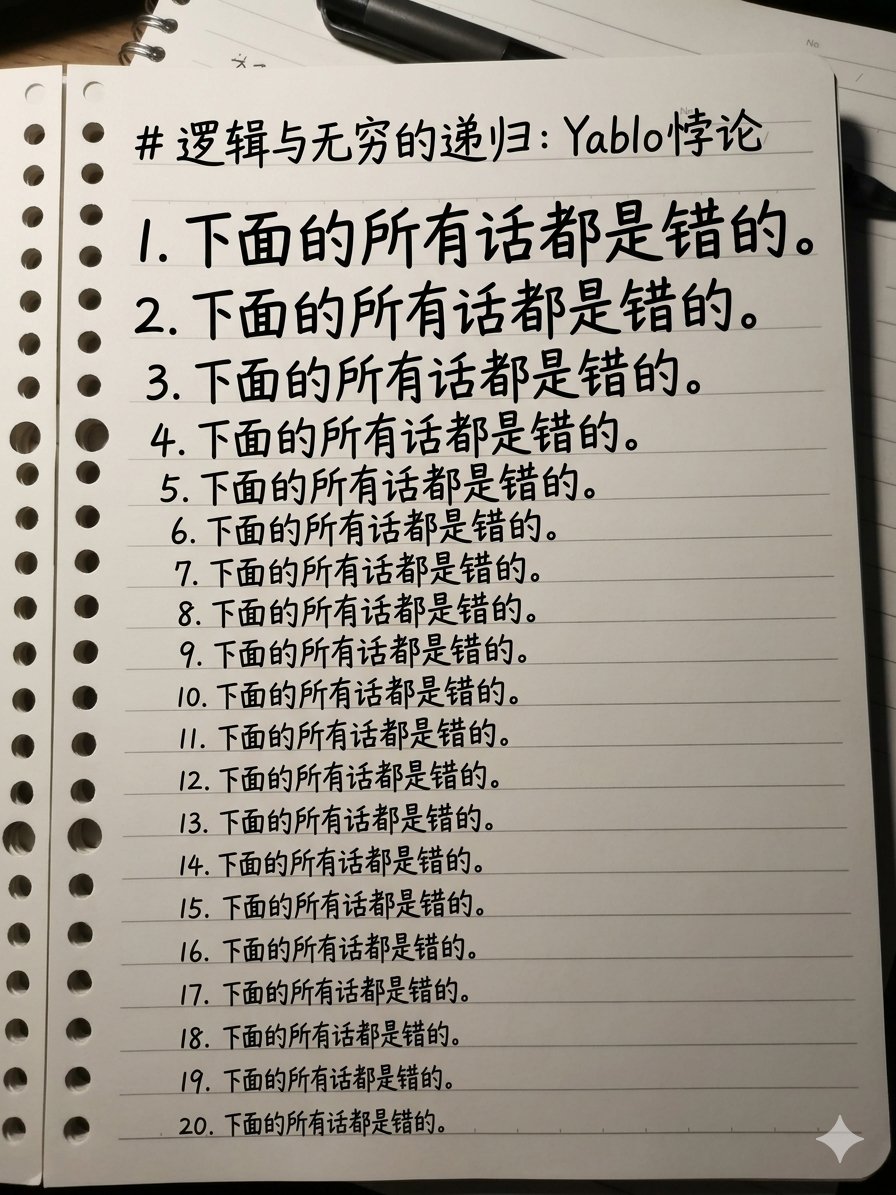 # 逻辑与无穷的递归：Yablo悖论
1. 下面的所有话都是错的。
2. 下面的所有话都是错的。
3. 下面的所有话都是错的。
4. 下面的所有话都是错的。
5. 下面的所有话都是错的。
6. 下面的所有话都是错的。
7. 下面的所有话都是错的。
8. 下面的所有话都是错的。
9. 下面的所有话都是错的。
10. 下面的所有话都是错的。
11. 下面的所有话都是错的。
12. 下面的所有话都是错的。
13. 下面的所有话都是错的。
14. 下面的所有话都是错的。
15. 下面的所有话都是错的。
16. 下面的所有话都是错的。
17. 下面的所有话都是错的。
18. 下面的所有话都是错的。
19. 下面的所有话都是错的。
20. 下面的所有话都是错的。